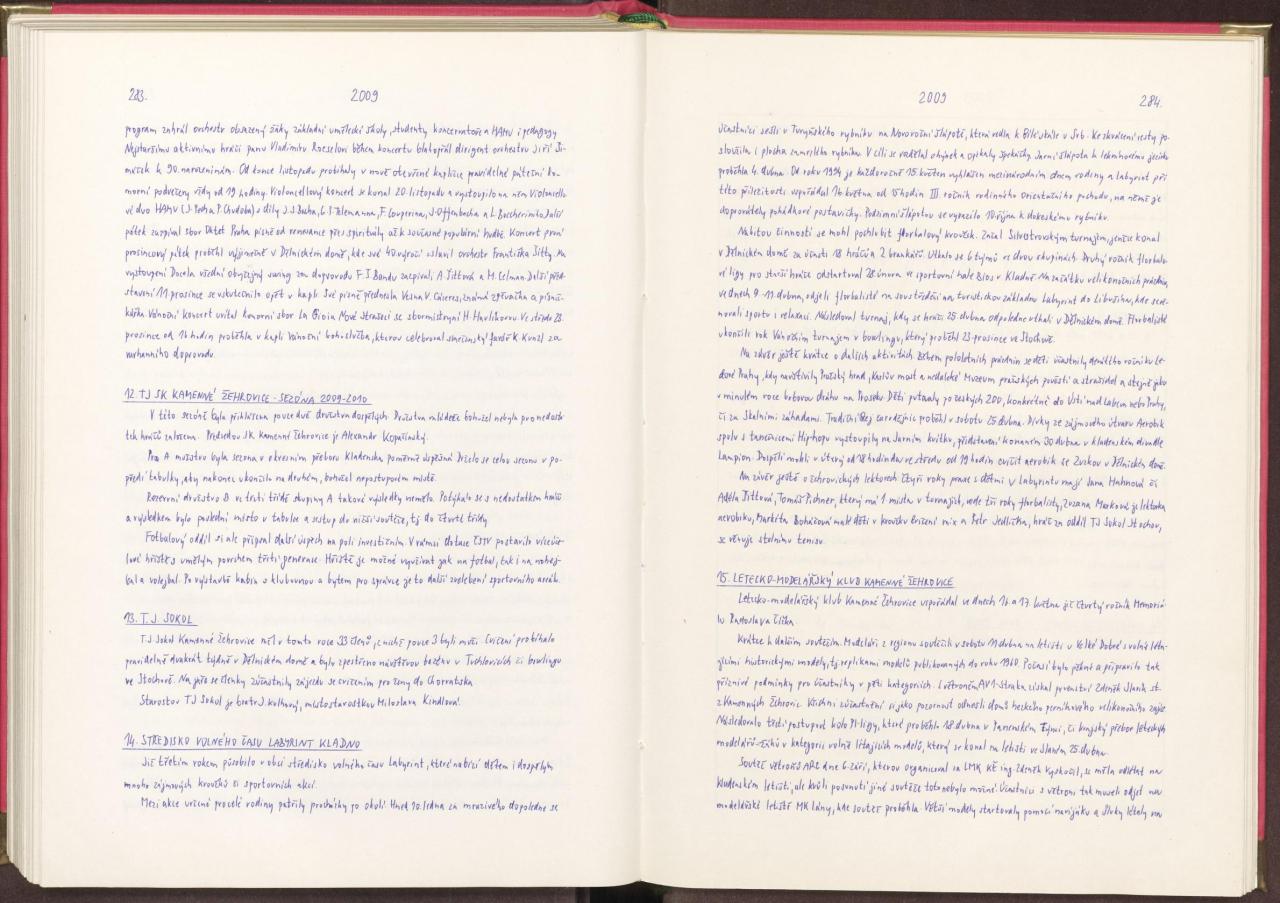 283.
2009
program zahrál orchestr obsazený žáky základní umělecké školy, studenty konzervatoře a HAMU i pedagogy.
Nejstaršímu aktivnímu hráči panu Vladimíru Roeselovi během koncertu blahopřál dirigent orchestru Jiří Ši-
můček k 90. narozeninám. Od konce listopadu probíhaly v nově otevřené kapličce pravidelné páteční ko-
morní podvečery vždy od 19 hodiny. Violoncellový koncert se konal 20. listopadu a vystoupilo na něm Violoncello
vé duo HAMU (J. Pecha, P. Chudoba) s díly J. S. Bacha, G. F. Telemanna, F. Couperina, J. Offenbacha a L. Boccheriniho. Další
pátek zazpíval sbor Oktet Praha písně od renesance přes spirituály až k současné populární hudbě. Koncert první
prosincový pátek proběhl výjimečně v Dělnickém domě, kde své 40. výročí oslavil orchestr Františka Šitty. Na
vystoupení Docela všední obyčejný swing za doprovodu F. J. Bandu zazpívali A. Tittová a M. Celman. Další před-
stavení 11. prosince se uskutečnilo opět v kapli. Své písně přednesla Vesna V. Cáceres, známá zpěvačka a písnič-
kářka. Vánoční koncert uvítal komorní sbor La Gioia Nové Strašecí se sbormistryní H. Havlíkovou. Ve středu 23.
prosince od 16 hodin proběhla v kapli Vánoční bohoslužba, kterou celebroval smečenský farář K. Kunzl za
varhanního doprovodu.
12. TJ SK KAMENNÉ ŽEHROVICE - SEZÓNA 2009-2010
V této sezóně byla přihlášena pouze dvě družstva dospělých. Družstva mládeže bohužel nebyla pro nedosta-
tek hráčů založena. Předsedou SK Kamenné Žehrovice je Alexandr Kopačinský.
Pro A mužstvo byla sezona v okresním přeboru Kladenska poměrně úspěšná. Drželo se celou sezonu v po-
předí tabulky, aby nakonec ukončilo na druhém, bohužel nepostupovém místě.
Rezervní družstvo B ve třetí třídě skupiny A takové výsledky nemělo. Potýkalo se s nedostatkem hráčů
a výsledkem bylo poslední místo v tabulce a sestup do nižší soutěže, tj. do čtvrté třídy.
Fotbalový oddíl si ale připsal další úspěch na poli investičním. V rámci dotace ČSTV postavilo víceúče-
lové hřiště s umělým povrchem třetí generace. Hřiště je možné využívat jak na fotbal, tak i na nohej-
bal a volejbal. Po výstavbě kabin s klubovnou a bytem pro správce je to další zvelebení sportovního areálu.
13. T.J. SOKOL
TJ Sokol Kamenné Žehrovice měl v tomto roce 33 členů, z nichž pouze 3 byli muži. Cvičení probíhalo
pravidelně dvakrát týdně v Dělnickém domě a bylo zpestřeno návštěvou bazénu v Tuchlovicích či bowlingu
ve Stochově. Na jaře se členky zúčastnily zájezdu se cvičením pro ženy do Chorvatska.
Starostou TJ Sokol je bratr J. Kulhavý, místostarostkou Miloslava Kindlová.
14. STŘEDISKO VOLNÉHO ČASU LABYRINT KLADNO
Již třetím rokem působilo v obci středisko volného času Labyrint, které nabízí dětem i dospělým
mnoho zájmových kroužků či sportovních akcí.
Mezi akce určené pro celé rodiny patřily procházky po okolí. Hned 10. ledna za mrazivého dopoledne se
2009
284.
účastníci sešli u Turyňského rybníku na Novoroční šlápotě, která vedla k Bílé skále v Srb. Ke zkrácení cesty po-
sloužila i plocha zamrzlého rybníku. V cíli se rozdělal ohýnek a opékaly špekáčky. Jarní šlápota k lekninovému jezírku
proběhla 4. dubna. Od roku 1994 je každoročně 15. květen vyhlášen mezinárodním dnem rodiny a labyrint při
této příležitosti uspořádal 16. května od 15 hodin III. ročník rodinného orientačního pochodu, na němž je
doprovázely pohádkové postavičky. Podzimní šlápotou se vyrazilo 10. října k dokeskému rybníku.
Nabitou činností se mohl pochlubit florbalový kroužek. Začal Silvestrovským turnajem, jenž se konal
v Dělnickém domě za účasti 18 hráčů a 2 brankářů. Utkalo se 6 týmů ve dvou skupinách. Druhý ročník florbalo-
vé ligy pro starší hráče odstartoval 28. února ve sportovní hale Bios v Kladně. Na začátku velikonočních prázdnin,
ve dnech 9.-11. dubna, odjeli florbalisté na soustředění na turistickou základnu Labyrint do Libušína, kde se vě-
novali sportu i relaxaci. Následoval turnaj, kdy se hráči 25. dubna odpoledne utkali v Dělnickém domě. Florbalisté
ukončili rok Vánočním turnajem v bowlingu, který proběhl 23. prosince ve Stochově.
Na závěr ještě krátce o dalších aktivitách. Během pololetních prázdnin se děti účastnily devátého ročníku Le-
dové Prahy, kdy navštívily Pražský hrad, Karlův most a nedaleké Muzeum pražských pověstí a strašidel a stejně jako
v minulém roce bobovou dráhu na Proseku. Děti putovaly po českých ZOO, konkrétně do Ústí nad Labem nebo Prahy,
či za Skalními záhadami. Tradiční Rej čarodějnic proběhl v sobotu 25. dubna. Dívky ze zájmového útvaru Aerobik
spolu s tanečnicemi Hip-hopu vystoupily na Jarním kvítku, představení konaném 30. dubna v kladenském divadle
Lampion. Dospělí mohli v úterý od 18 hodin a ve středu od 19 hodin cvičit aerobik se Zuzkou v Dělnickém domě.
Na závěr ještě o žehrovických lektorech. Čtyři roky práce s dětmi v Labyrintu mají Jana Hahnová či
Adéla Tittová, Tomáš Pichner, který má 1. místa v turnajích, vede tři roky florbalisty, Zuzana Marková je lektorka
aerobiku, Markéta Boháčová malé děti v kroužku Cvičení mix a Petr Jedlička, hráč za oddíl TJ Sokol Stochov,
se věnuje stolnímu tenisu.
15. LETECKO-MODELÁŘSKÝ KLUB KAMENNÉ ŽEHROVICE
Letecko-modelářský klub Kamenné Žehrovice uspořádal ve dnech 16. a 17. května již čtvrtý ročník Memoriá-
lu Radoslava Čížka.
Krátce k dalším soutěžím. Modeláři z regionu soutěžili v sobotu 11. dubna na letišti u Velké Dobré s volně léta-
jícími historickými modely, tj. replikami modelů publikovaných do roku 1960. Počasí bylo pěkné a připravilo tak
příznivé podmínky pro účastníky v pěti kategoriích. S větroněm AV1-Straka získal prvenství Zdeněk Slaník st.
z Kamenných Žehrovic. Všichni zúčastnění si jako pozornost odnesli domů hezkého perníkového velikonočního zajíce.
Následovalo třetí postupové kolo P1-ligy, které proběhlo 18. dubna v Panenském Týnci, či krajský přebor leteckých
modelářů-žáků v kategorii volně létajících modelů, který se konal na letišti ve Slaném 25. dubna.
Soutěž větroňů ARC dne 6. září, kterou organizoval za LMK KŽ ing. Zdeněk Vyskočil, se měla odlétat na
kladenském letišti, ale kvůli posunutí jiné soutěže toto nebylo možné. Účastníci s větroni tak museli odjet na
modelářské letiště MK Lány, kde soutěž proběhla. Větší modely startovaly pomocí navijáku a šluky létaly na